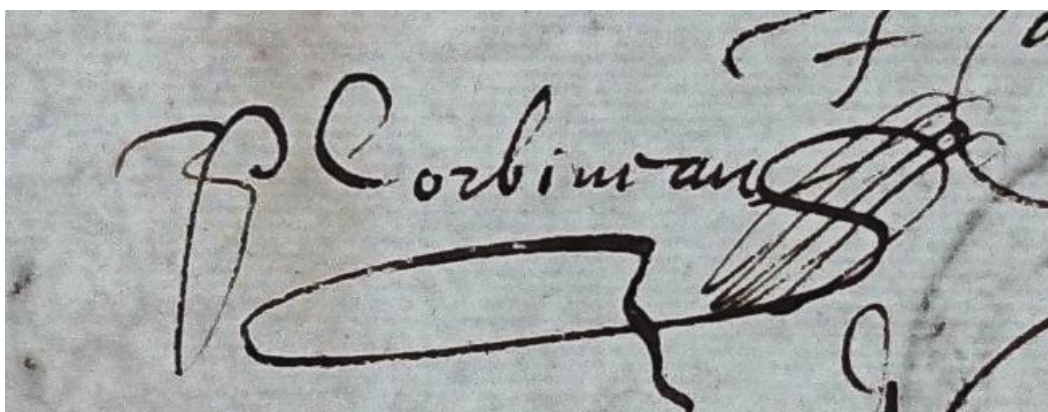 P Corbineau